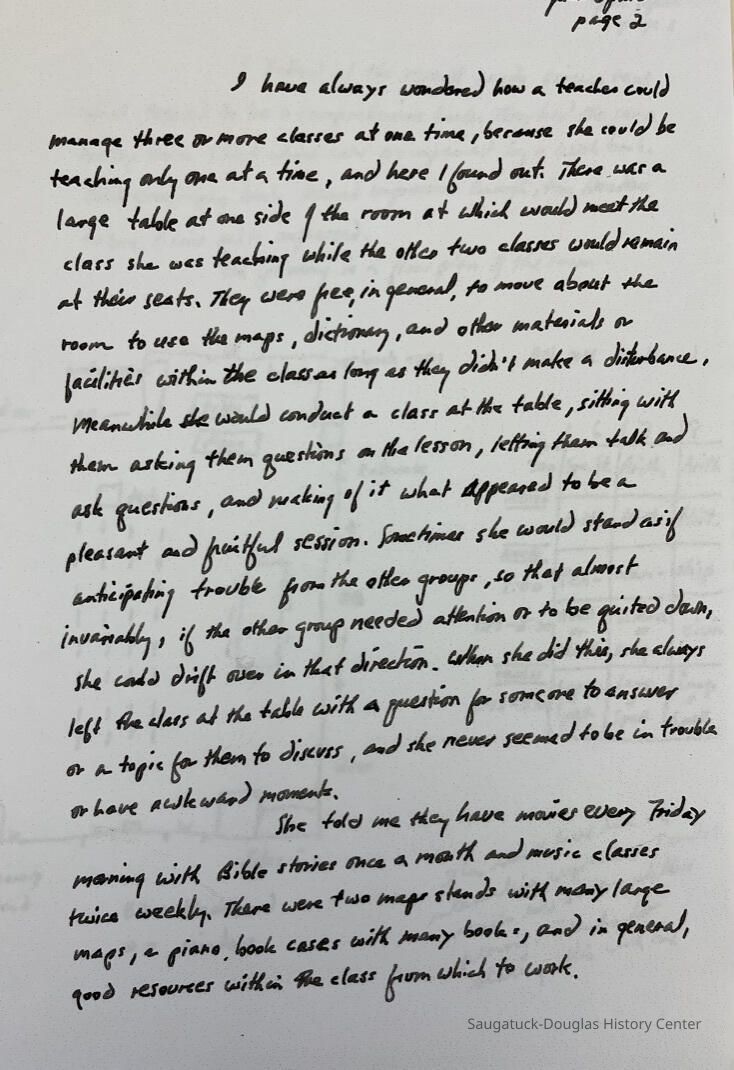 page 2
I have always wondered how a teacher could
manage three or more classes at one time, because she could be
teaching only one at a time, and here I found out. There was a
large table at one side of the room at which would meet the
class she was teaching while the other two classes would remain
at their seats. They were free, in general, to move about the
room to use the maps, dictionary, and other materials or
facilities within the class as long as they didn't make a disturbance.
Meanwhile she would conduct a class at the table, sitting with
them asking them questions on the lesson, letting them talk and
ask questions, and making of it what appeared to be a
pleasant and fruitful session. Sometimes she would stand as if
anticipating trouble from the other groups, so that almost
invariably, if the other group needed attention or to be quited down,
she could drift over in that direction. When she did this, she always
left the class at the table with a question for someone to answer
or a topic for them to discuss, and she never seemed to be in trouble
or have awkward moments.
She told me they have movies every Friday
morning with Bible stories once a month and music classes
twice weekly. There were two maps stands with many large
maps, a piano, book cases with many books, and in general,
good resources within the class from which to work.
Saugatuck-Douglas History Center